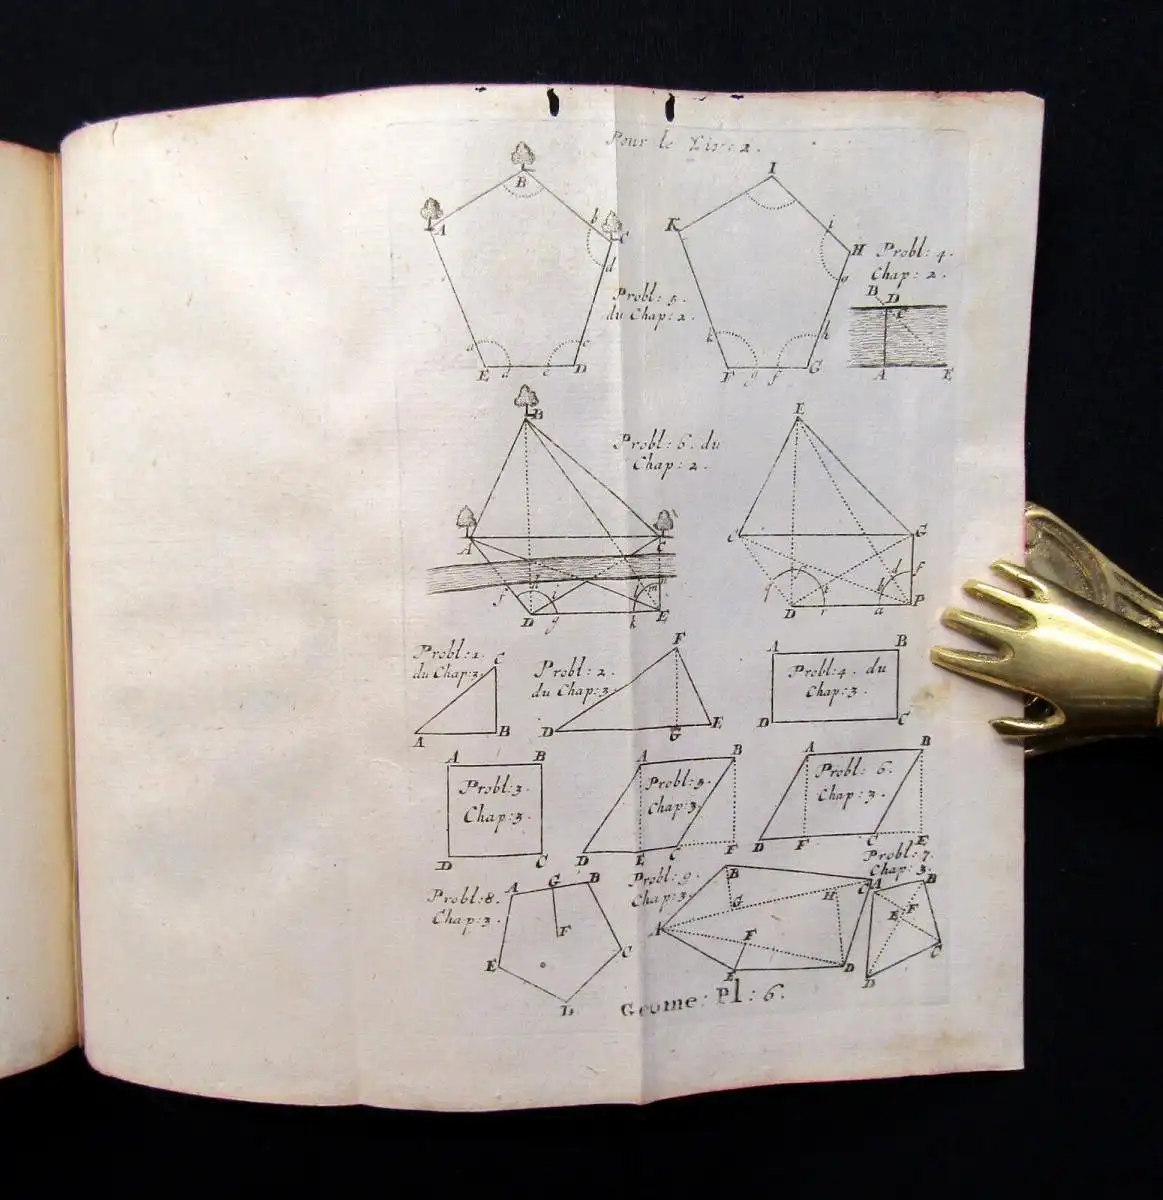 Pour le Liv: 2.
B
A
b
C
d
a
E
d
e
D
c
Probl: 5.
du Chap: 2.
I
K
i
H
o
k
F
g
f
G
h
Probl: 4.
Chap: 2.
B
D
C
A
E
B
Probl: 6. du
Chap: 2.
A
C
f
h
i
D
g
l
m
k
E
E
C
G
D
r
d
f
h
a
P
Probl: 1.
du Chap: 3.
C
A
B
Probl: 2.
du Chap: 3.
F
D
G
E
A
B
Probl: 4. du
Chap: 3.
D
C
A
B
Probl: 3.
Chap: 3.
D
C
A
B
Probl: 5.
Chap: 3.
D
E
C
F
A
B
Probl: 6.
Chap: 3.
D
F
C
E
Probl: 8.
Chap: 3.
A
G
B
F
E
C
Probl: 9.
Chap: 3.
B
G
H
C
A
F
E
D
Probl: 7.
Chap: 3.
A
B
E
F
C
D
Geome: Pl: 6.